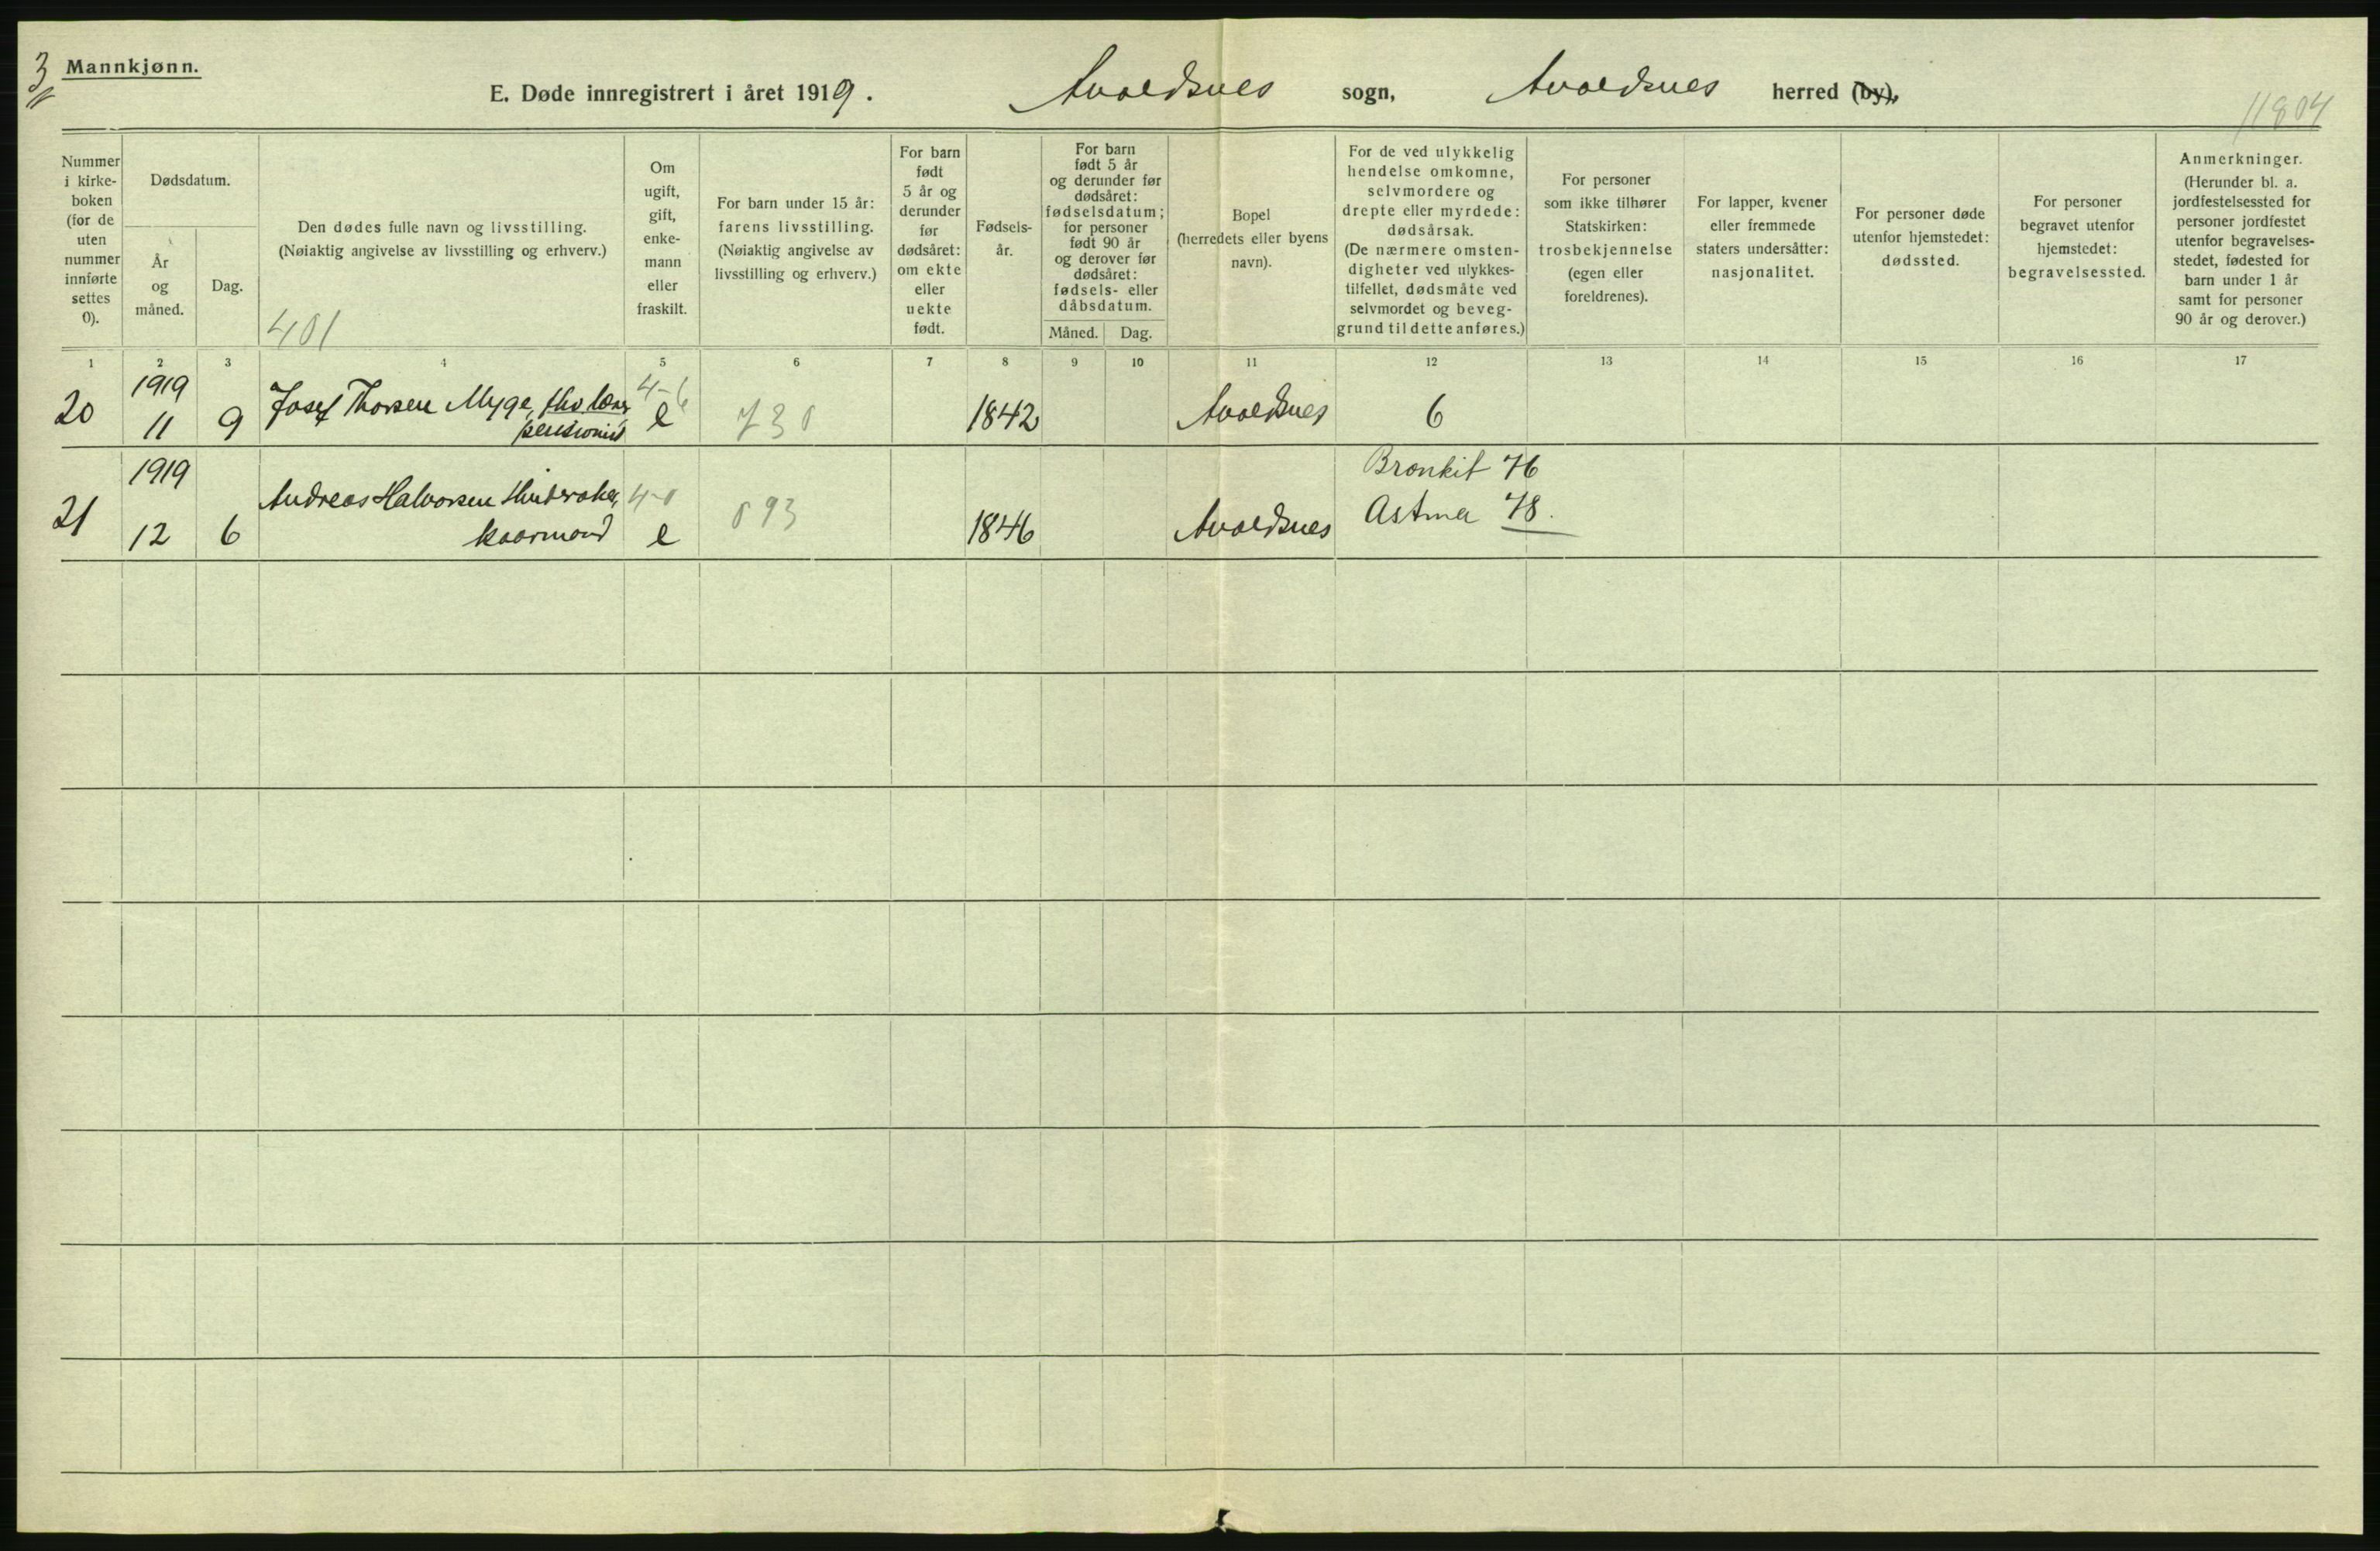 3
Mannkjønn.
E. Døde innregistrert i året 1919. Avaldsnes sogn, Avaldsnes herred (by),
11804
Nummer
i kirke-
boken
(for de
uten
nummer
innførte
settes
0).
Dødsdatum.
År
og
måned.
Dag.
Den dødes fulle navn og livsstilling.
(Nøiaktig angivelse av livsstilling og erhverv.)
401
Om
ugift,
gift,
enke-
mann
eller
fraskilt.
For barn under 15 år:
farens livsstilling.
(Nøiaktig angivelse av
livsstilling og erhverv.)
For barn
født
5 år og
derunder
før
dødsåret:
om ekte
eller
uekte
født.
Fødsels-
år.
For barn
født 5 år
og derunder før
dødsåret:
fødselsdatum;
for personer
født 90 år
og derover før
dødsåret:
fødsels- eller
dåbsdatum.
Måned. Dag.
Bopel
(herredets eller byens
navn).
For de ved ulykkelig
hendelse omkomne,
selvmordere og
drepte eller myrdede:
dødsårsak.
(De nærmere omsten-
digheter ved ulykkes-
tilfellet, dødsmåte ved
selvmordet og beveg-
grund til dette anføres.)
For personer
som ikke tilhører
Statskirken:
trosbekjennelse
(egen eller
foreldrenes).
For lapper, kvener
eller fremmede
staters undersåtter:
nasjonalitet.
For personer døde
utenfor hjemstedet:
dødssted.
For personer
begravet utenfor
hjemstedet:
begravelsessted.
Anmerkninger.
(Herunder bl. a.
jordfestelsessted for
personer jordfestet
utenfor begravelses-
stedet, fødested for
barn under 1 år
samt for personer
90 år og derover.)
1 2 3 4 5 6 7 8 9 10 11 12 13 14 15 16 17
1919 4-6
20 11 9 Josef Thorsen Myge, e 730 1842 Avaldsnes 6
pensionist
1919 Bronkit 76
21 Andreas Halvorsen 4-0 093 Astma 78.
12 6 kaarmand e 1846 Avaldsnes